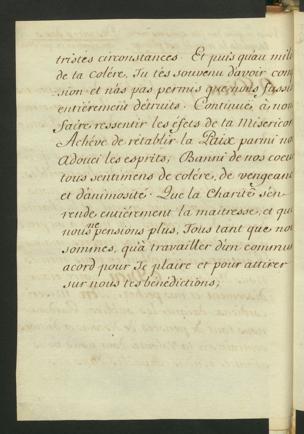 tristes circonstances. Et puis qu'au mili
de ta colére, Tu t'es souvenu d'avoir com
sion et n'as pas permis que nous fussio
entiérement détruits. Continuë, à nou
faire ressentir les éfets de ta Misericor
Achéve de rétablir la Paix parmi no
Adouci les esprits, Banni de nos coeu
tous sentimens de colére, de vengeanc
et d'animosité. Que la Charité s'en
rende entiérement la maitresse, et que
nous ne pensions plus, Tous tant que no
sommes, qu'à travailler d'un commun
acord pour Te plaire et pour attirer
sur nous tes bénédictions,